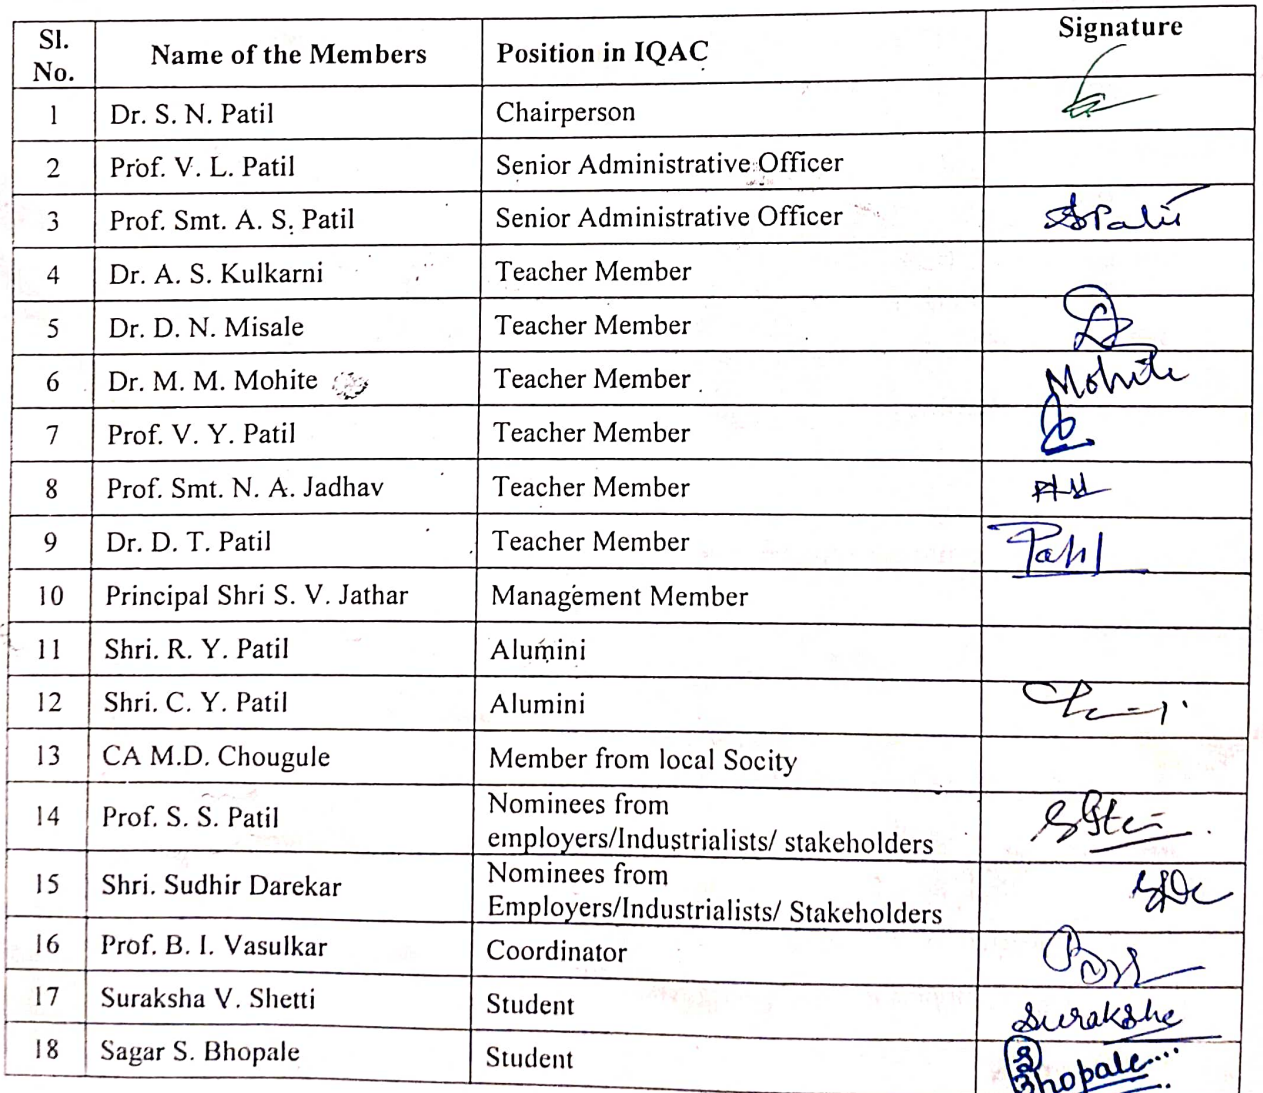 Sl. No. Name of the Members Position in IQAC Signature
1 Dr. S. N. Patil Chairperson
2 Prof. V. L. Patil Senior Administrative Officer
3 Prof. Smt. A. S. Patil Senior Administrative Officer SPatil
4 Dr. A. S. Kulkarni Teacher Member
5 Dr. D. N. Misale Teacher Member
6 Dr. M. M. Mohite Teacher Member Mohite
7 Prof. V. Y. Patil Teacher Member
8 Prof. Smt. N. A. Jadhav Teacher Member
9 Dr. D. T. Patil Teacher Member Patil
10 Principal Shri S. V. Jathar Management Member
11 Shri. R. Y. Patil Alumini
12 Shri. C. Y. Patil Alumini
13 CA M.D. Chougule Member from local Socity
14 Prof. S. S. Patil Nominees from
employers/Industrialists/ stakeholders
15 Shri. Sudhir Darekar Nominees from
Employers/Industrialists/ Stakeholders
16 Prof. B. I. Vasulkar Coordinator
17 Suraksha V. Shetti Student Suraksha
18 Sagar S. Bhopale Student Bhopale